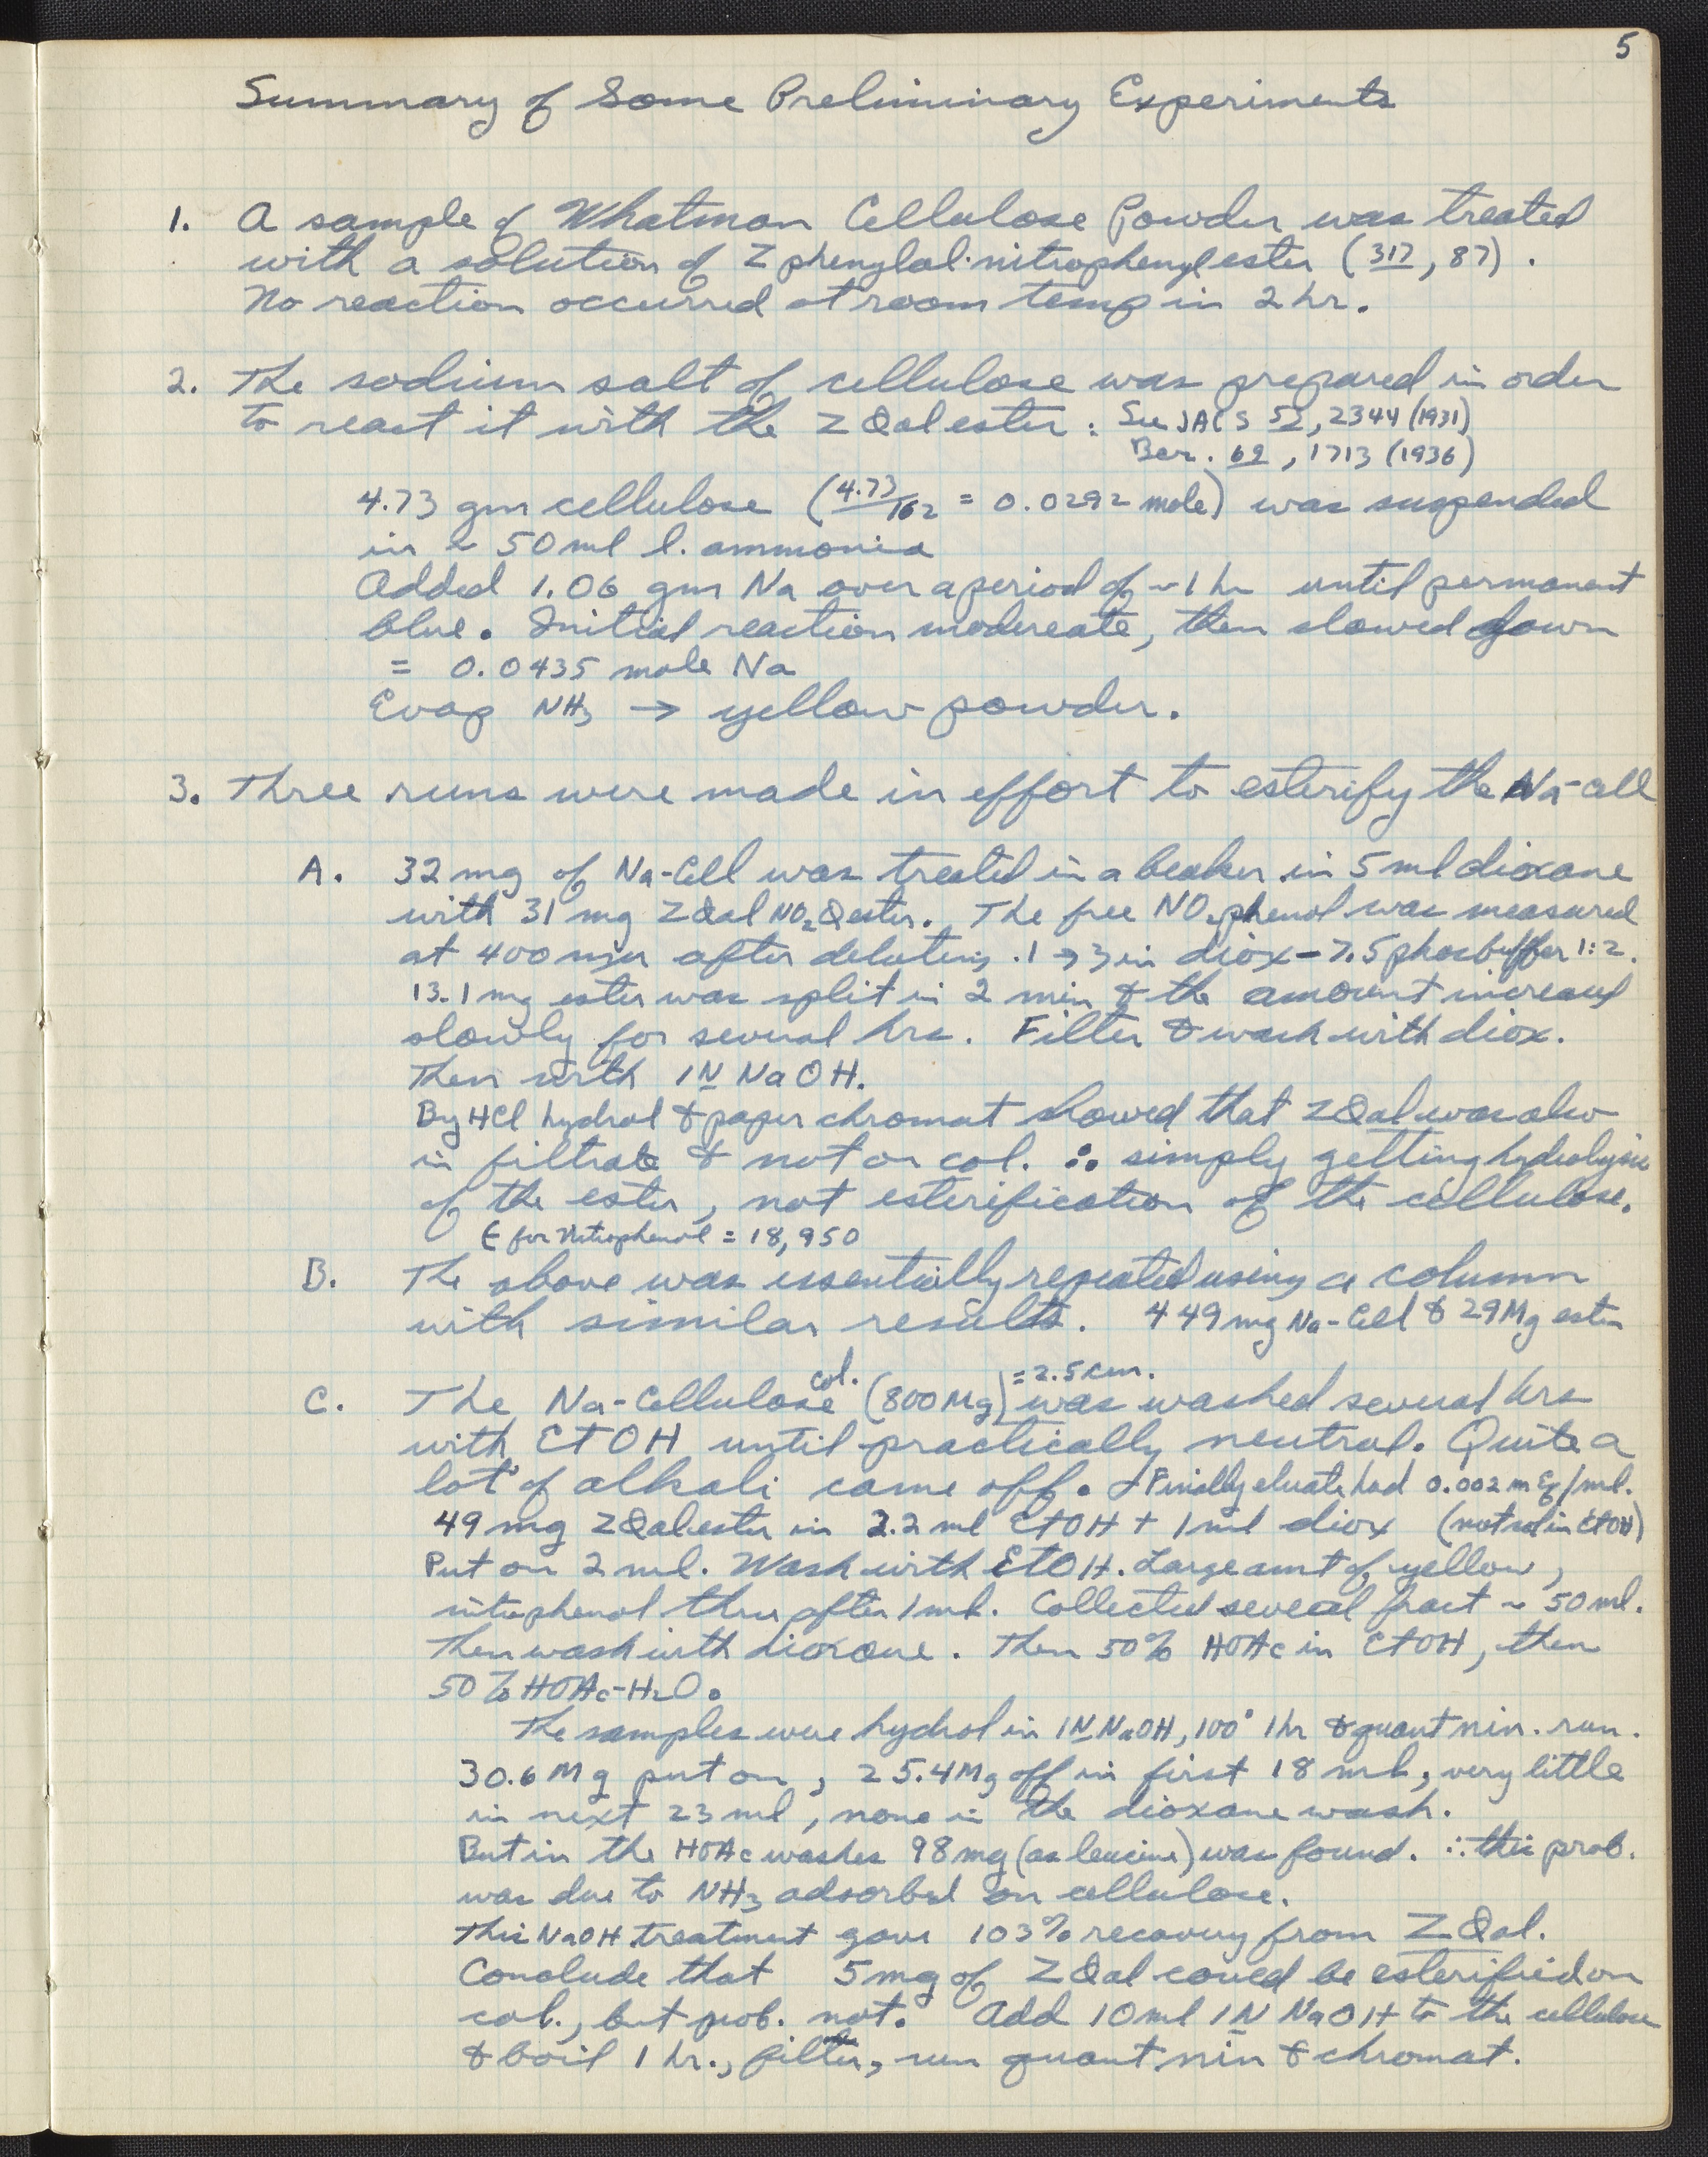 5
Summary of Some Preliminary Experiments
1. A sample of Whatman Cellulose Powder was treated
with a solution of Z phenylal·nitrophenyl ester (317, 87).
No reaction occurred at room temp in 2 hr.
2. The sodium salt of cellulose was prepared in order
to react it with the Z Øal ester: See JACS 52, 2344 (1931)
Ber. 69, 1713 (1936)
4.73 gm cellulose (4.73/162 = 0.0292 mole) was suspended
in ~ 50 ml l. ammonia
Added 1.06 gm Na over a period of ~1 hr until permanent
blue. Initial reaction modereate, then slowed down
= 0.0435 mole Na
Evap NH3 → yellow powder.
3. Three runs were made in effort to esterify the Na-cell
A. 32 mg of Na-Cell was treated in a beaker in 5 ml dioxane
with 31 mg ZØal NO2Øester. The free NO2phenol was measured
at 400 mμ after deluting .1 → 3 in diox-7.5 phosbuffer 1:2.
13.1 mg ester was split in 2 min & the amount increased
slowly for several hrs. Filter & wash with diox.
Then with 1N NaOH.
By HCl hydrol & paper chromat showed that ZØal was also
in filtrate & not on col. ∴ simply getting hydrolysis
of the ester, not esterification of the cellulose.
ϵ for Nitrophenol = 18,950
B. The above was essentially repeated using a column
with similar results. 449 mg Na-Cell & 29 Mg ester
C. The Na-Cellulose col. (800 Mg) = 2.5 cm. was washed several hrs
with EtOH until practically neutral. Quite a
lot of alkali came off. & Finally eluate had 0.002 mEq/ml.
49 mg ZØal ester in 2.2 ml EtOH + 1 ml diox (not sol in EtOH)
Put on 2 ml. Wash with EtOH. Large amt of yellow,
nitrophenol thru after 1 ml. Collected several fract ~ 50 ml.
Then wash with dioxane. Then 50% HOAc in EtOH, then
50% HOAc-H2O.
The samples were hydrol in 1N NaOH, 100° 1 hr & quant nin. run.
30.6 Mg put on, 25.4 Mg off in first 18 ml, very little
in next 23 ml, none in the dioxane wash.
But in the HOAc washes 98 mg (as leucine) was found. ∴ this prob.
was due to NH3 adsorbed on cellulose.
This NaOH treatment gave 103% recovery from ZØal.
Conclude that 5 mg of ZØal could be esterified on
col., but prob. not. Add 10 ml 1N NaOH to the cellulose
& boil 1 hr., filter, run quant nin & chromat.